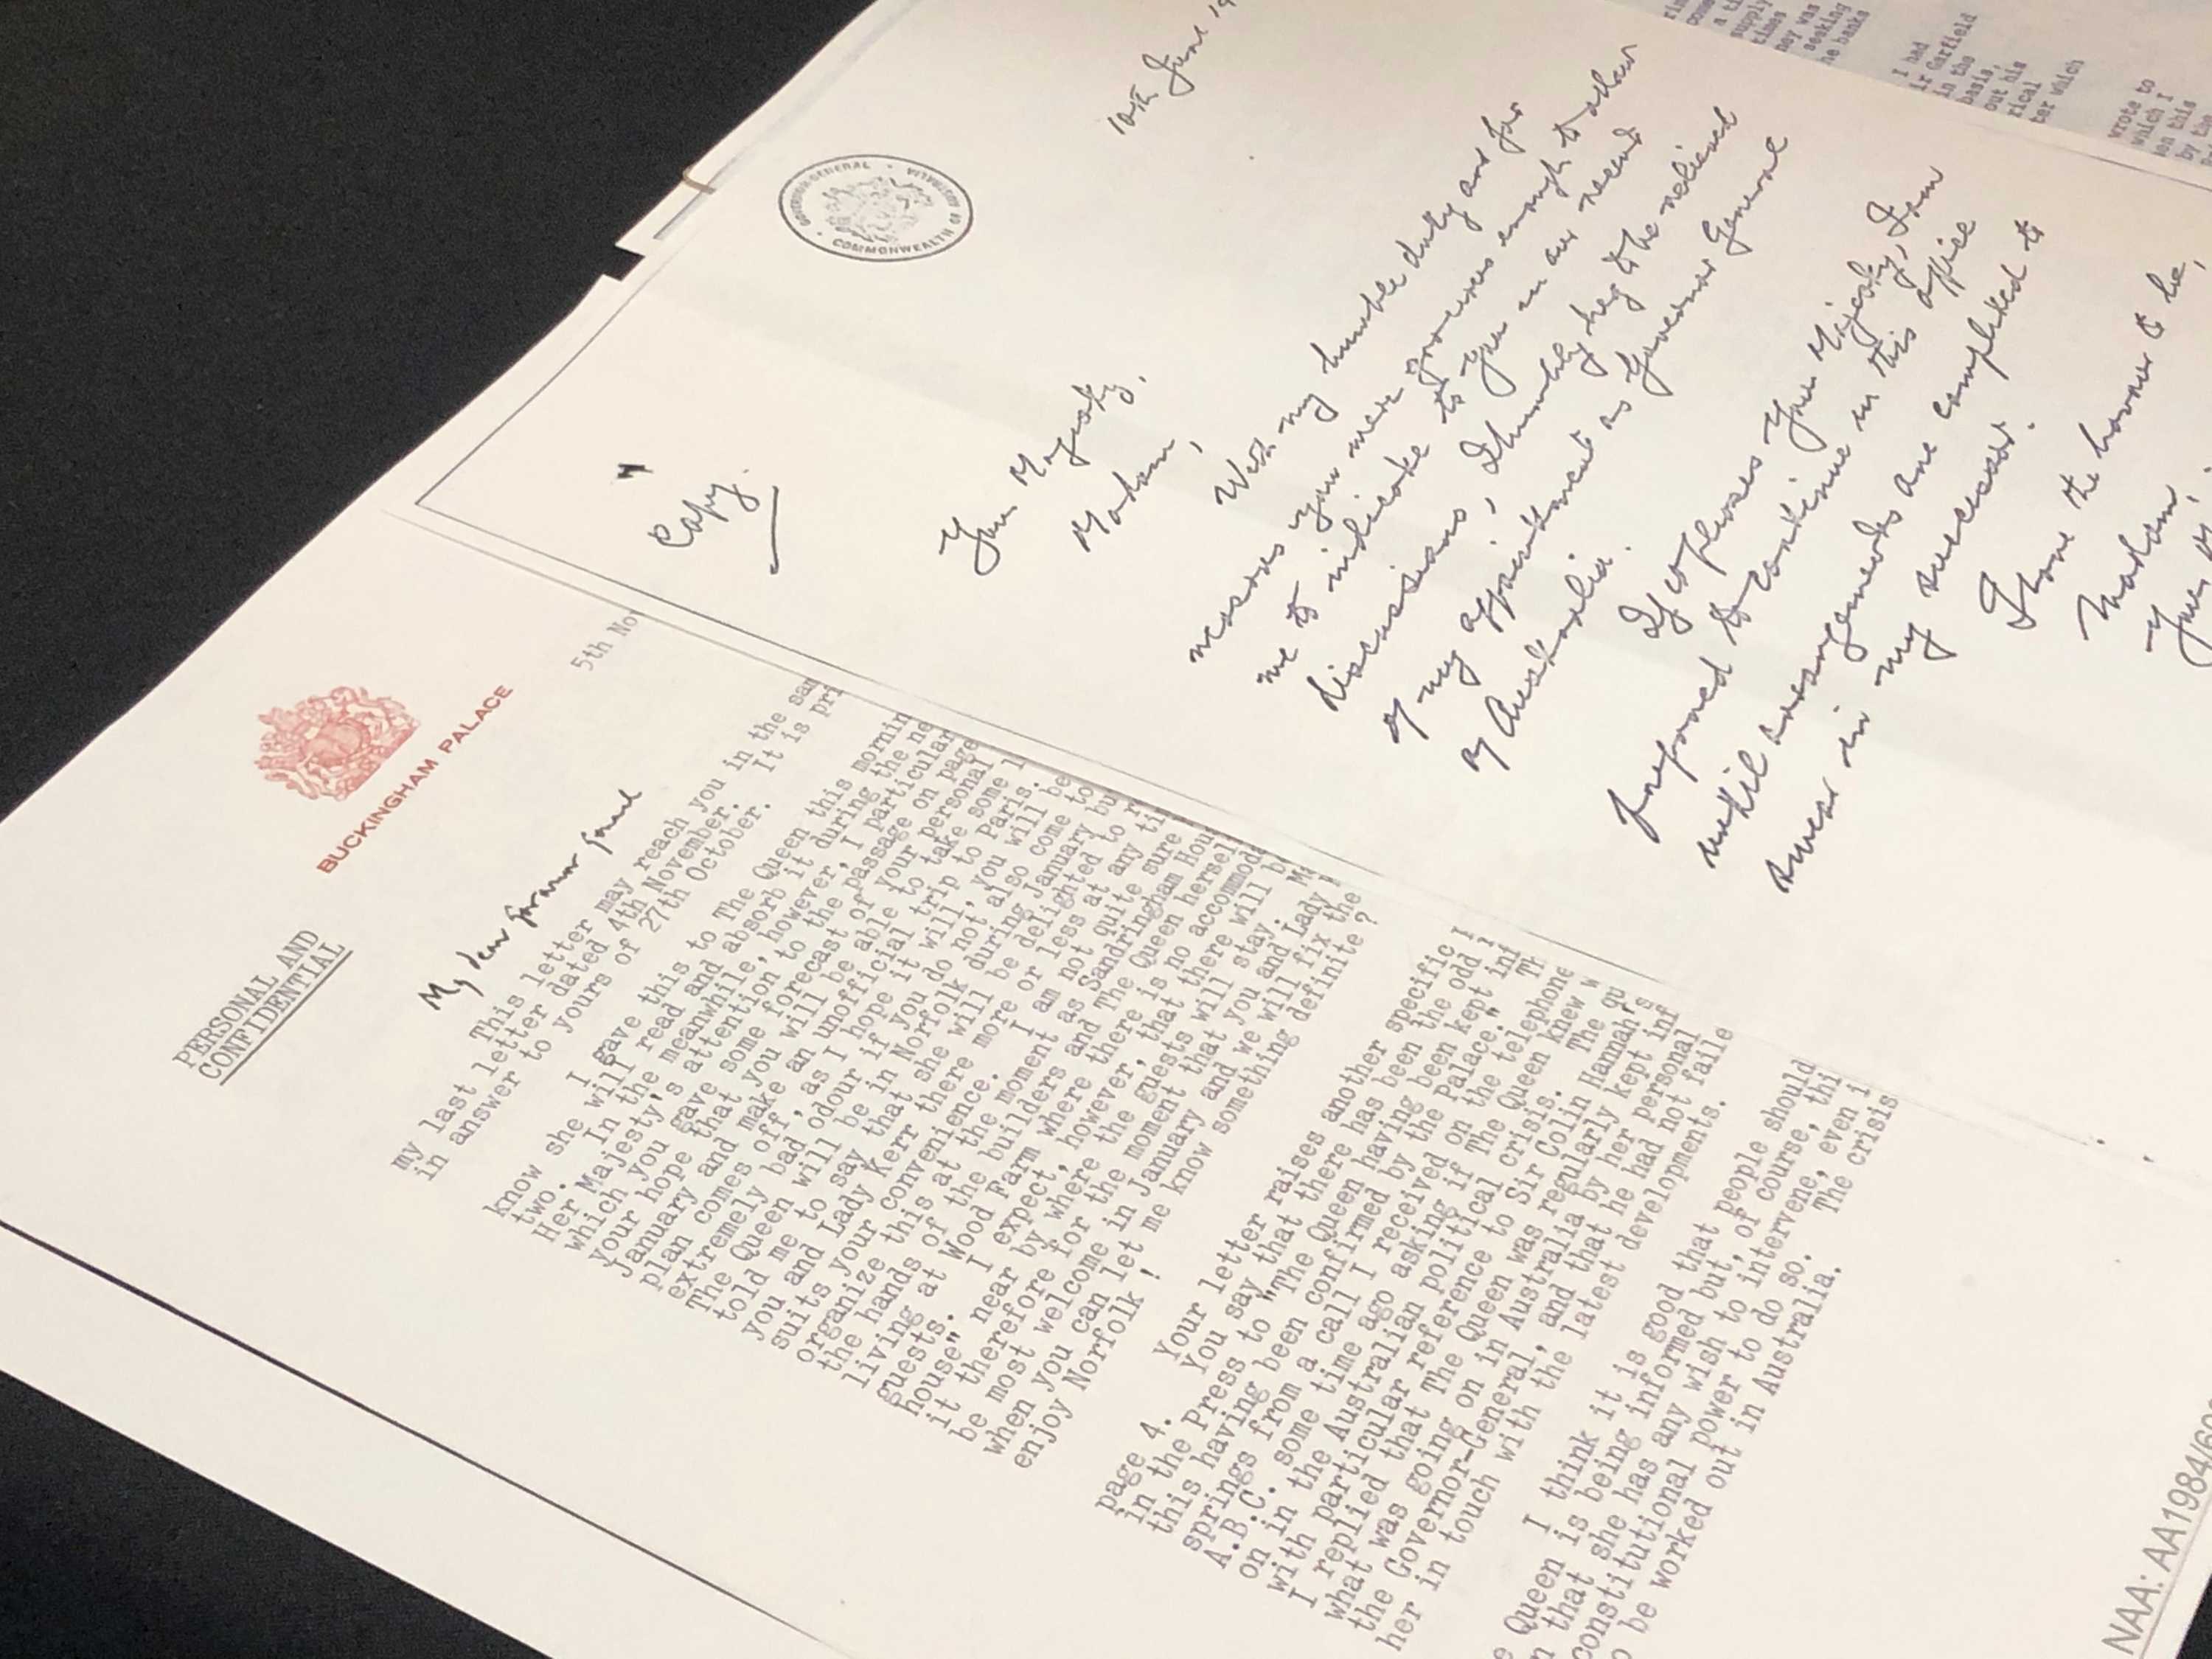 BUCKINGHAM PALACE
PERSONAL AND
CONFIDENTIAL
5th No
My dear Governor General
This letter may reach you in the sam
my last letter dated 4th November. It is pri
in answer to yours of 27th October.
I gave this to The Queen this mornin
know she will read and absorb it during the ne
two. In the meanwhile, however, I particular
Her Majesty's attention to the passage on page
which you gave some forecast of your personal
your hope that you will be able to take some l
January and make an unofficial trip to Paris.
plan comes off, as I hope it will, you will be
extremely bad odour if you do not also come to
The Queen will be in Norfolk during January bu
told me to say that she will be delighted to
you and Lady Kerr there more or less at any ti
suits your convenience. I am not quite sure
organize this at the moment as Sandringham Hou
the hands of the builders and The Queen hersel
living at Wood Farm where there is no accommoda
guests. I expect, however, that there will b
house" near by where the guests will stay. Ma
it therefore for the moment that you and Lady
be most welcome in January and we will fix the
when you can let me know something definite ?
enjoy Norfolk !
Your letter raises another specific
page 4. You say that there has been the odd
in the Press to "The Queen having been kept inf
this having been confirmed by the Palace." Th
springs from a call I received on the telephone
A.B.C. some time ago asking if The Queen knew w
on in the Australian political crisis. The qu
with particular reference to Sir Colin Hannah's
I replied that The Queen was regularly kept inf
what was going on in Australia by her personal
the Governor-General, and that he had not faile
her in touch with the latest developments.
I think it is good that people should
e Queen is being informed but, of course, thi
n that she has any wish to intervene, even i
constitutional power to do so. The crisis
o be worked out in Australia.
NAA: AA1984/609
Copy.
GOVERNOR-GENERAL
COMMONWEALTH OF AUSTRALIA
10th June 19
Your Majesty,
Madam,
With my humble duty and for
reasons you were gracious enough to allow
me to indicate to you in our recent
discussions, I humbly beg to be relieved
of my appointment as Governor General
of Australia.
If it pleases Your Majesty, I am
prepared to continue in this office
until arrangements are completed to
swear in my successor.
I have the honour to be,
Madam,
Your
supply
times
ney was
seeking
he banks
I had
ir Garfield
in the
basis,
out his
rical
ter which
wrote to
which I
on this
by the